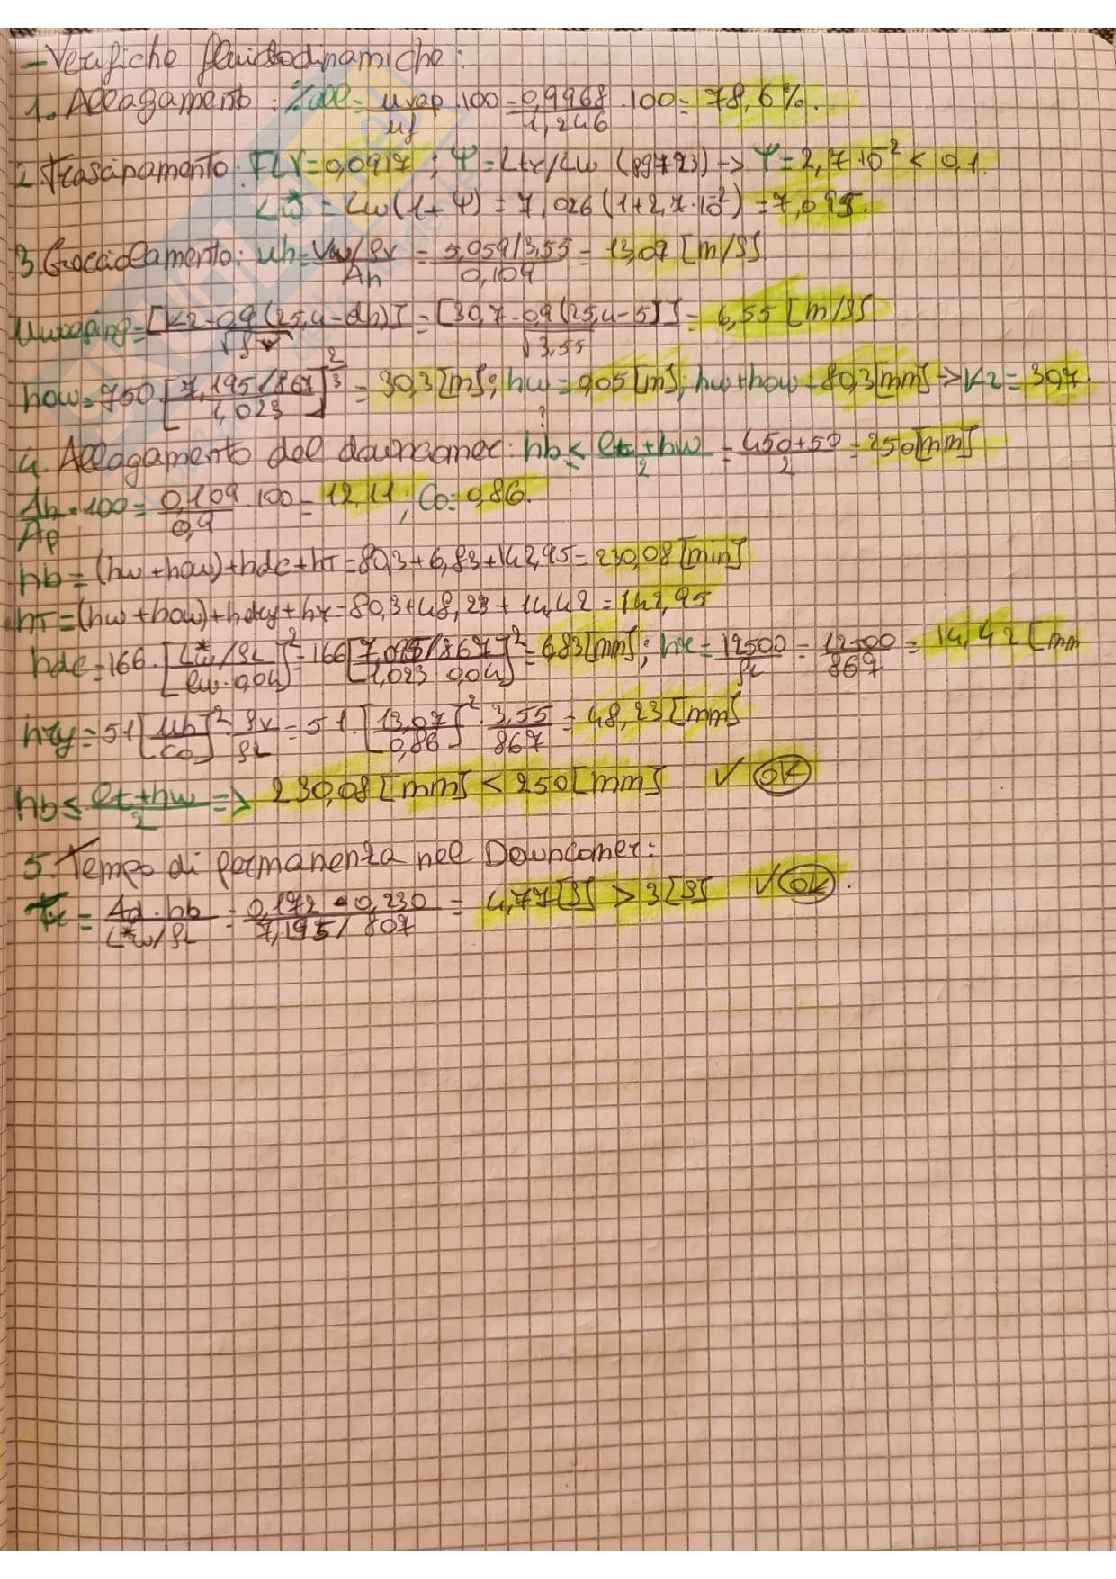 - Verifiche fluidodinamiche:
1. Allagamento: %all = uvap/uf · 100 = 0,9968/1,246 · 100 = 78,6%.
2. Trascinamento: FLV = 0,0917; Ψ = Ltr/Lw (897 23) -> Ψ = 2,7·10^-2 < 0,1.
L*w = Lw(1+Ψ) = 7,026 (1+2,7·10^-2) = 7,095.
3. Gocciolamento: uh = (Vw/ρv)/Ah = (5,059/3,55)/0,109 = 13,07 [m/s]
uweeping = [K2-0,9(25,4-dh)]/√ρv = [30,7-0,9(25,4-5)]/√3,55 = 6,55 [m/s]
how = 750 [(7,195/867)/1,023]^2/3 = 30,3 [m]; hw = 0,05 [m]; hw+how = 80,3 [mm] -> K2 = 30,7.
4. Allagamento del downcomer: hb ≤ (lt+hw)/2 = (450+50)/2 = 250 [mm]
Ah/Ap · 100 = 0,109/0,9 · 100 = 12,11; Co = 0,86.
hb = (hw+how)+hdc+hT = 80,3+6,83+142,95 = 230,08 [mm]
hT = (hw+how)+hdry+hr = 80,3+48,23+14,42 = 142,95
hdc = 166·[(L*w/ρL)/(lw·0,04)]^2 = 166[(7,095/867)/(1,023·0,04)]^2 = 6,83 [mm]; hr = 12500/ρL = 12500/867 = 14,42 [mm
hry = 51 [uh/Co]^2 ρv/ρL = 51·[13,07/0,86]^2 · 3,55/867 = 48,23 [mm]
hb ≤ (lt+hw)/2 => 230,08 [mm] < 250 [mm] ✓ OK
5. Tempo di permanenza nel Downcomer:
tr = (Ad·hb)/(L*w/ρL) = (0,172·0,230)/(7,195/807) = 4,77 [s] > 3 [s] ✓ OK.